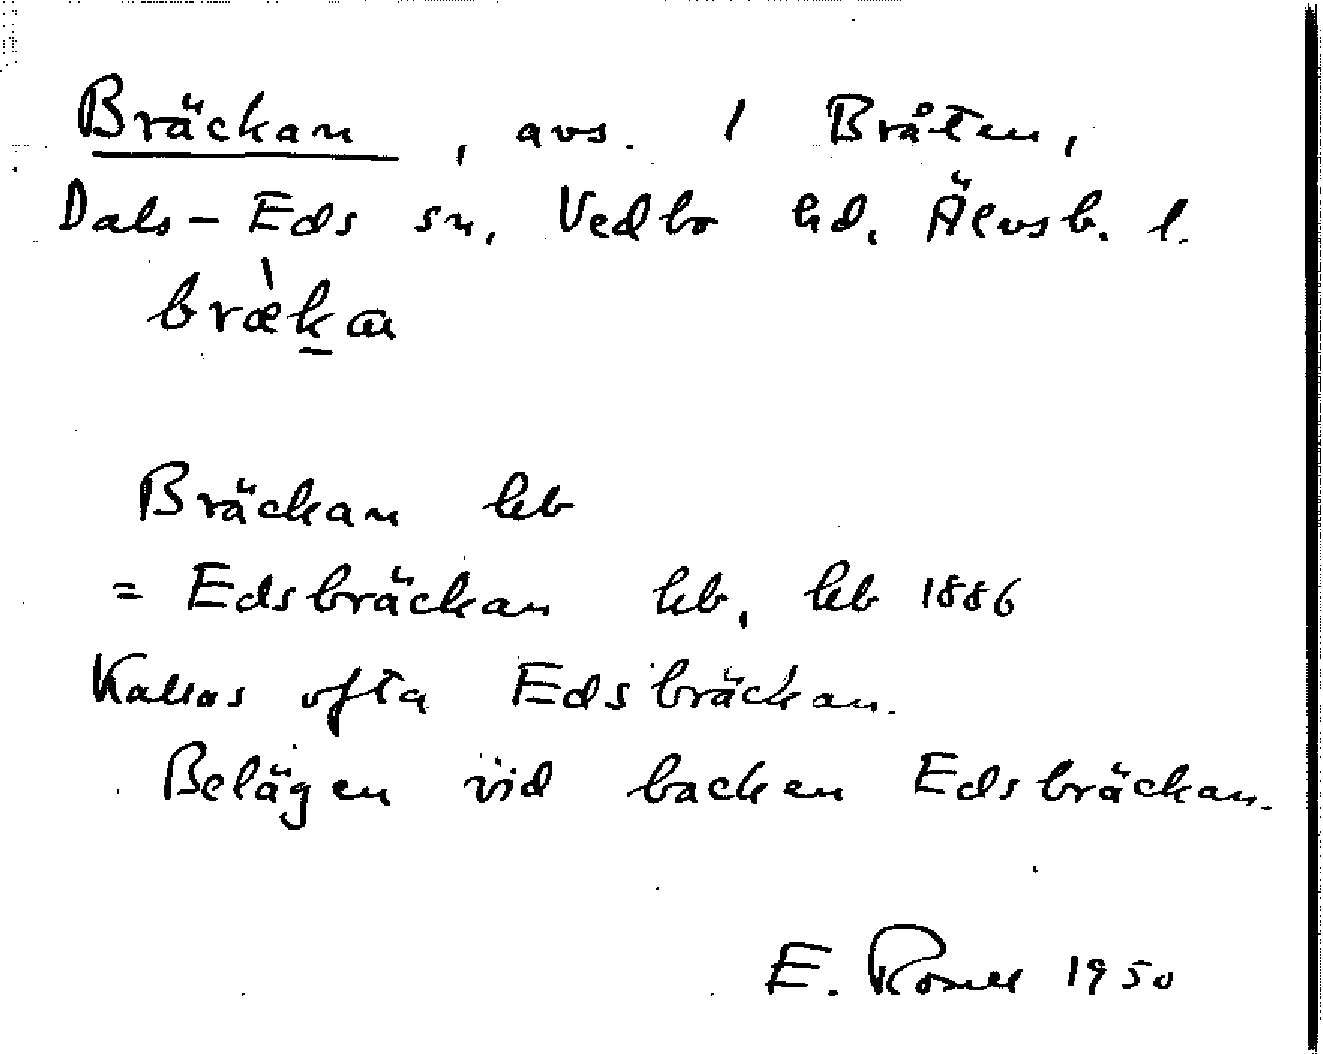 Bräckan, avs. / Bråten,
Dals-Eds sn, Vedbo hd. Älvsb. l.
Bräckan kb
= Edsbräckan kb, kb 1886
Kallas ofta Edsbräckan.
Belägen vid backen Edsbräckan.
E. 1950